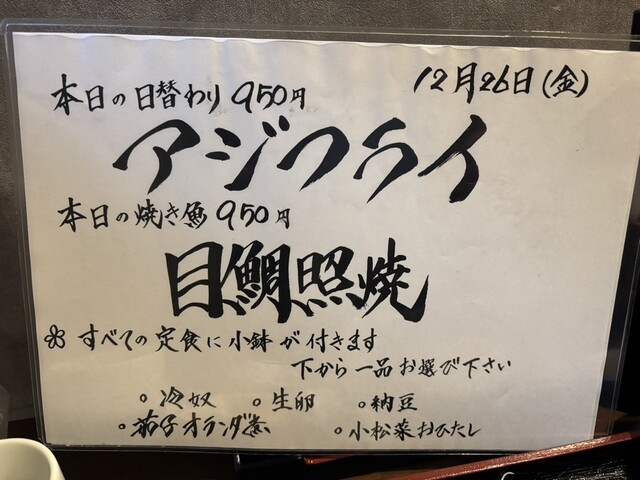 12月26日(金)
本日の日替わり 950円
アジフライ
本日の焼き魚 950円
目鯛照焼
すべての定食に小鉢が付きます
下から一品お選び下さい
○冷奴 ○生卵 ○納豆
○茄子オランダ煮 ○小松菜おひたし